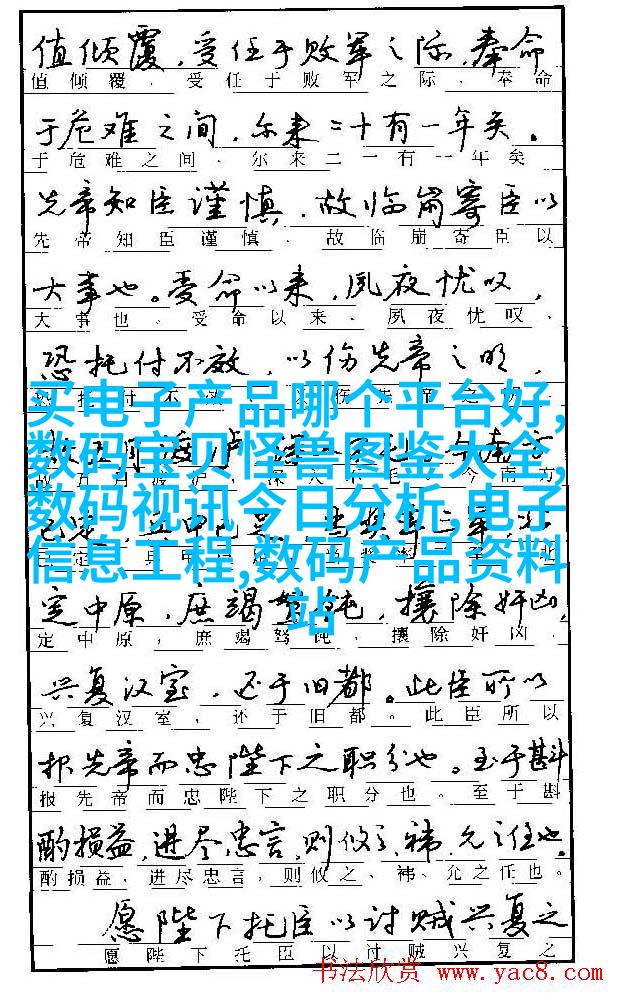 值倾覆，受任于败军之际，奉命
值倾覆，受任于败军之际，奉命
于危难之间，尔来二十有一年矣。
于危难之间，尔来二一有一年矣
先帝知臣谨慎，故临崩寄臣以
先帝知臣谨慎，故临崩寄臣以
大事也。受命以来，夙夜忧叹，
大事也。受命以来，夙夜忧叹，
恐托付不效，以伤先帝之明，
买电子产品哪个平台好,
数码宝贝怪兽图鉴大全,
数码视讯今日分析,电子
信息工程,数码产品资料
站
今南方
定中原，庶竭驽钝，攘除奸凶，
定中原，庶竭驽钝，攘除奸凶，
兴复汉室，还于旧都。此臣所以
兴复汉室，还于旧都。此臣所以
报先帝而忠陛下之职分也。至于斟
报先帝而忠陛下之职分也。至于斟
酌损益，进尽忠言，则攸之、祎、允之任也。
酌损益，进尽忠言，则攸之、祎、允之任也。
愿陛下托臣以讨贼兴复之
愿陛下托臣以讨贼兴复之
书法欣赏 www.yac8.com